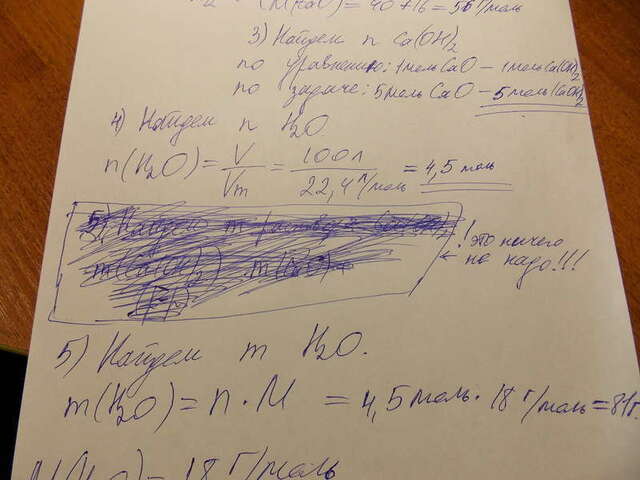 M(CaO) = 40 + 16 = 56 г/моль
3) Найдем n Ca(OH)2
по уравнению: 1 моль CaO – 1 моль Ca(OH)2
по задаче: 5 моль CaO – 5 моль Ca(OH)2
4) Найдем n H2O
n(H2O) = V/Vm = 100 л/22,4 л/моль = 4,5 моль
5) Найдем m раствора
m(Ca(OH)2)
! это ничего
не надо!!!
5) Найдем m H2O.
m(H2O) = n · M = 4,5 моль · 18 г/моль = 81 г.
M(H2O) = 18 г/моль